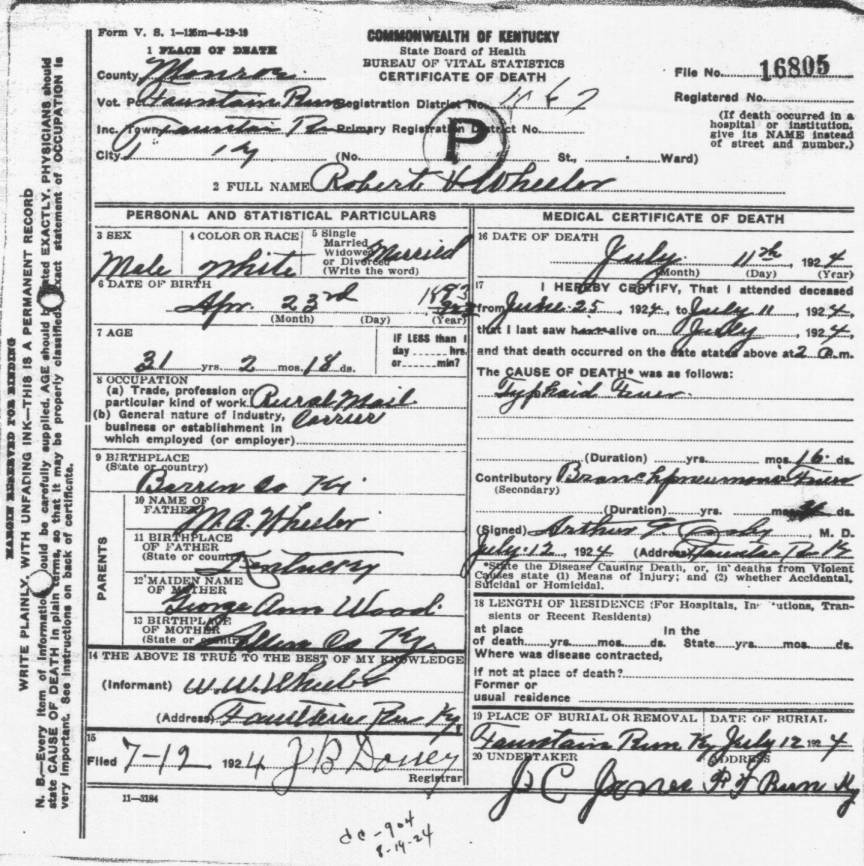 Form V. S. 1—125m—4-19-19
COMMONWEALTH OF KENTUCKY
State Board of Health
BUREAU OF VITAL STATISTICS
CERTIFICATE OF DEATH
1 PLACE OF DEATH
County Monroe
File No. 16805
Vot. Pc Fountain Run Registration District No.
Registered No.
Inc. Town Primary Registration District No.
(If death occurred in a hospital or institution, give its NAME instead of street and number.)
P
City Ky (No. St., Ward)
2 FULL NAME Robert H Wheeler
PERSONAL AND STATISTICAL PARTICULARS
3 SEX 4 COLOR OR RACE 5 Single Married Widowed or Divorced (Write the word) Married
Male White
6 DATE OF BIRTH
Apr. 23rd 1893
(Month) (Day) (Year)
7 AGE IF LESS than 1
day hrs.
31 yrs. 2 mos. 18 ds. or min?
8 OCCUPATION
(a) Trade, profession or
particular kind of work Rural Mail
(b) General nature of industry, Carrier
business or establishment in
which employed (or employer)
9 BIRTHPLACE
(State or country)
Barren Co Ky.
PARENTS
10 NAME OF
FATHER
M. A. Wheeler
11 BIRTHPLACE
OF FATHER
(State or country) Kentucky
12 MAIDEN NAME
OF MOTHER
George Ann Wood.
13 BIRTHPLACE
OF MOTHER
(State or country) Allen Co Ky.
14 THE ABOVE IS TRUE TO THE BEST OF MY KNOWLEDGE
(Informant) W. W. Wheeler
(Address) Run Ky.
15
Filed 7-12 1924 J B
Registrar
11—3184
MEDICAL CERTIFICATE OF DEATH
16 DATE OF DEATH
July 11th, 1924
(Month) (Day) (Year)
17 I HEREBY CERTIFY, That I attended deceased
from June 25, 1924, to July 11, 1924,
that I last saw h alive on July, 1924,
and that death occurred on the date stated above at 2 m.
The CAUSE OF DEATH* was as follows:
Typhoid Fever
(Duration) yrs. mos. 16 ds.
Contributory
(Secondary)
(Duration) yrs. mos. ds.
(Signed) Arthur M. D.
July 12, 1924 (Address)
*State the Disease Causing Death, or, in deaths from Violent
Causes state (1) Means of Injury; and (2) whether Accidental,
Suicidal or Homicidal.
18 LENGTH OF RESIDENCE (For Hospitals, Institutions, Tran-
sients or Recent Residents)
at place In the
of death yrs. mos. ds. State yrs. mos. ds.
Where was disease contracted,
if not at place of death?
Former or
usual residence
19 PLACE OF BURIAL OR REMOVAL DATE OF BURIAL
Fountain Run Ky July 12 1924
20 UNDERTAKER ADDRESS
J C Jones F Run Ky
dc-904
8-14-24
MARGIN RESERVED FOR BINDING
WRITE PLAINLY, WITH UNFADING INK—THIS IS A PERMANENT RECORD
N. B.—Every item of information should be carefully supplied. AGE should be stated EXACTLY. PHYSICIANS should
state CAUSE OF DEATH in plain terms, so that it may be properly classified. Exact statement of OCCUPATION is
very important. See instructions on back of certificate.